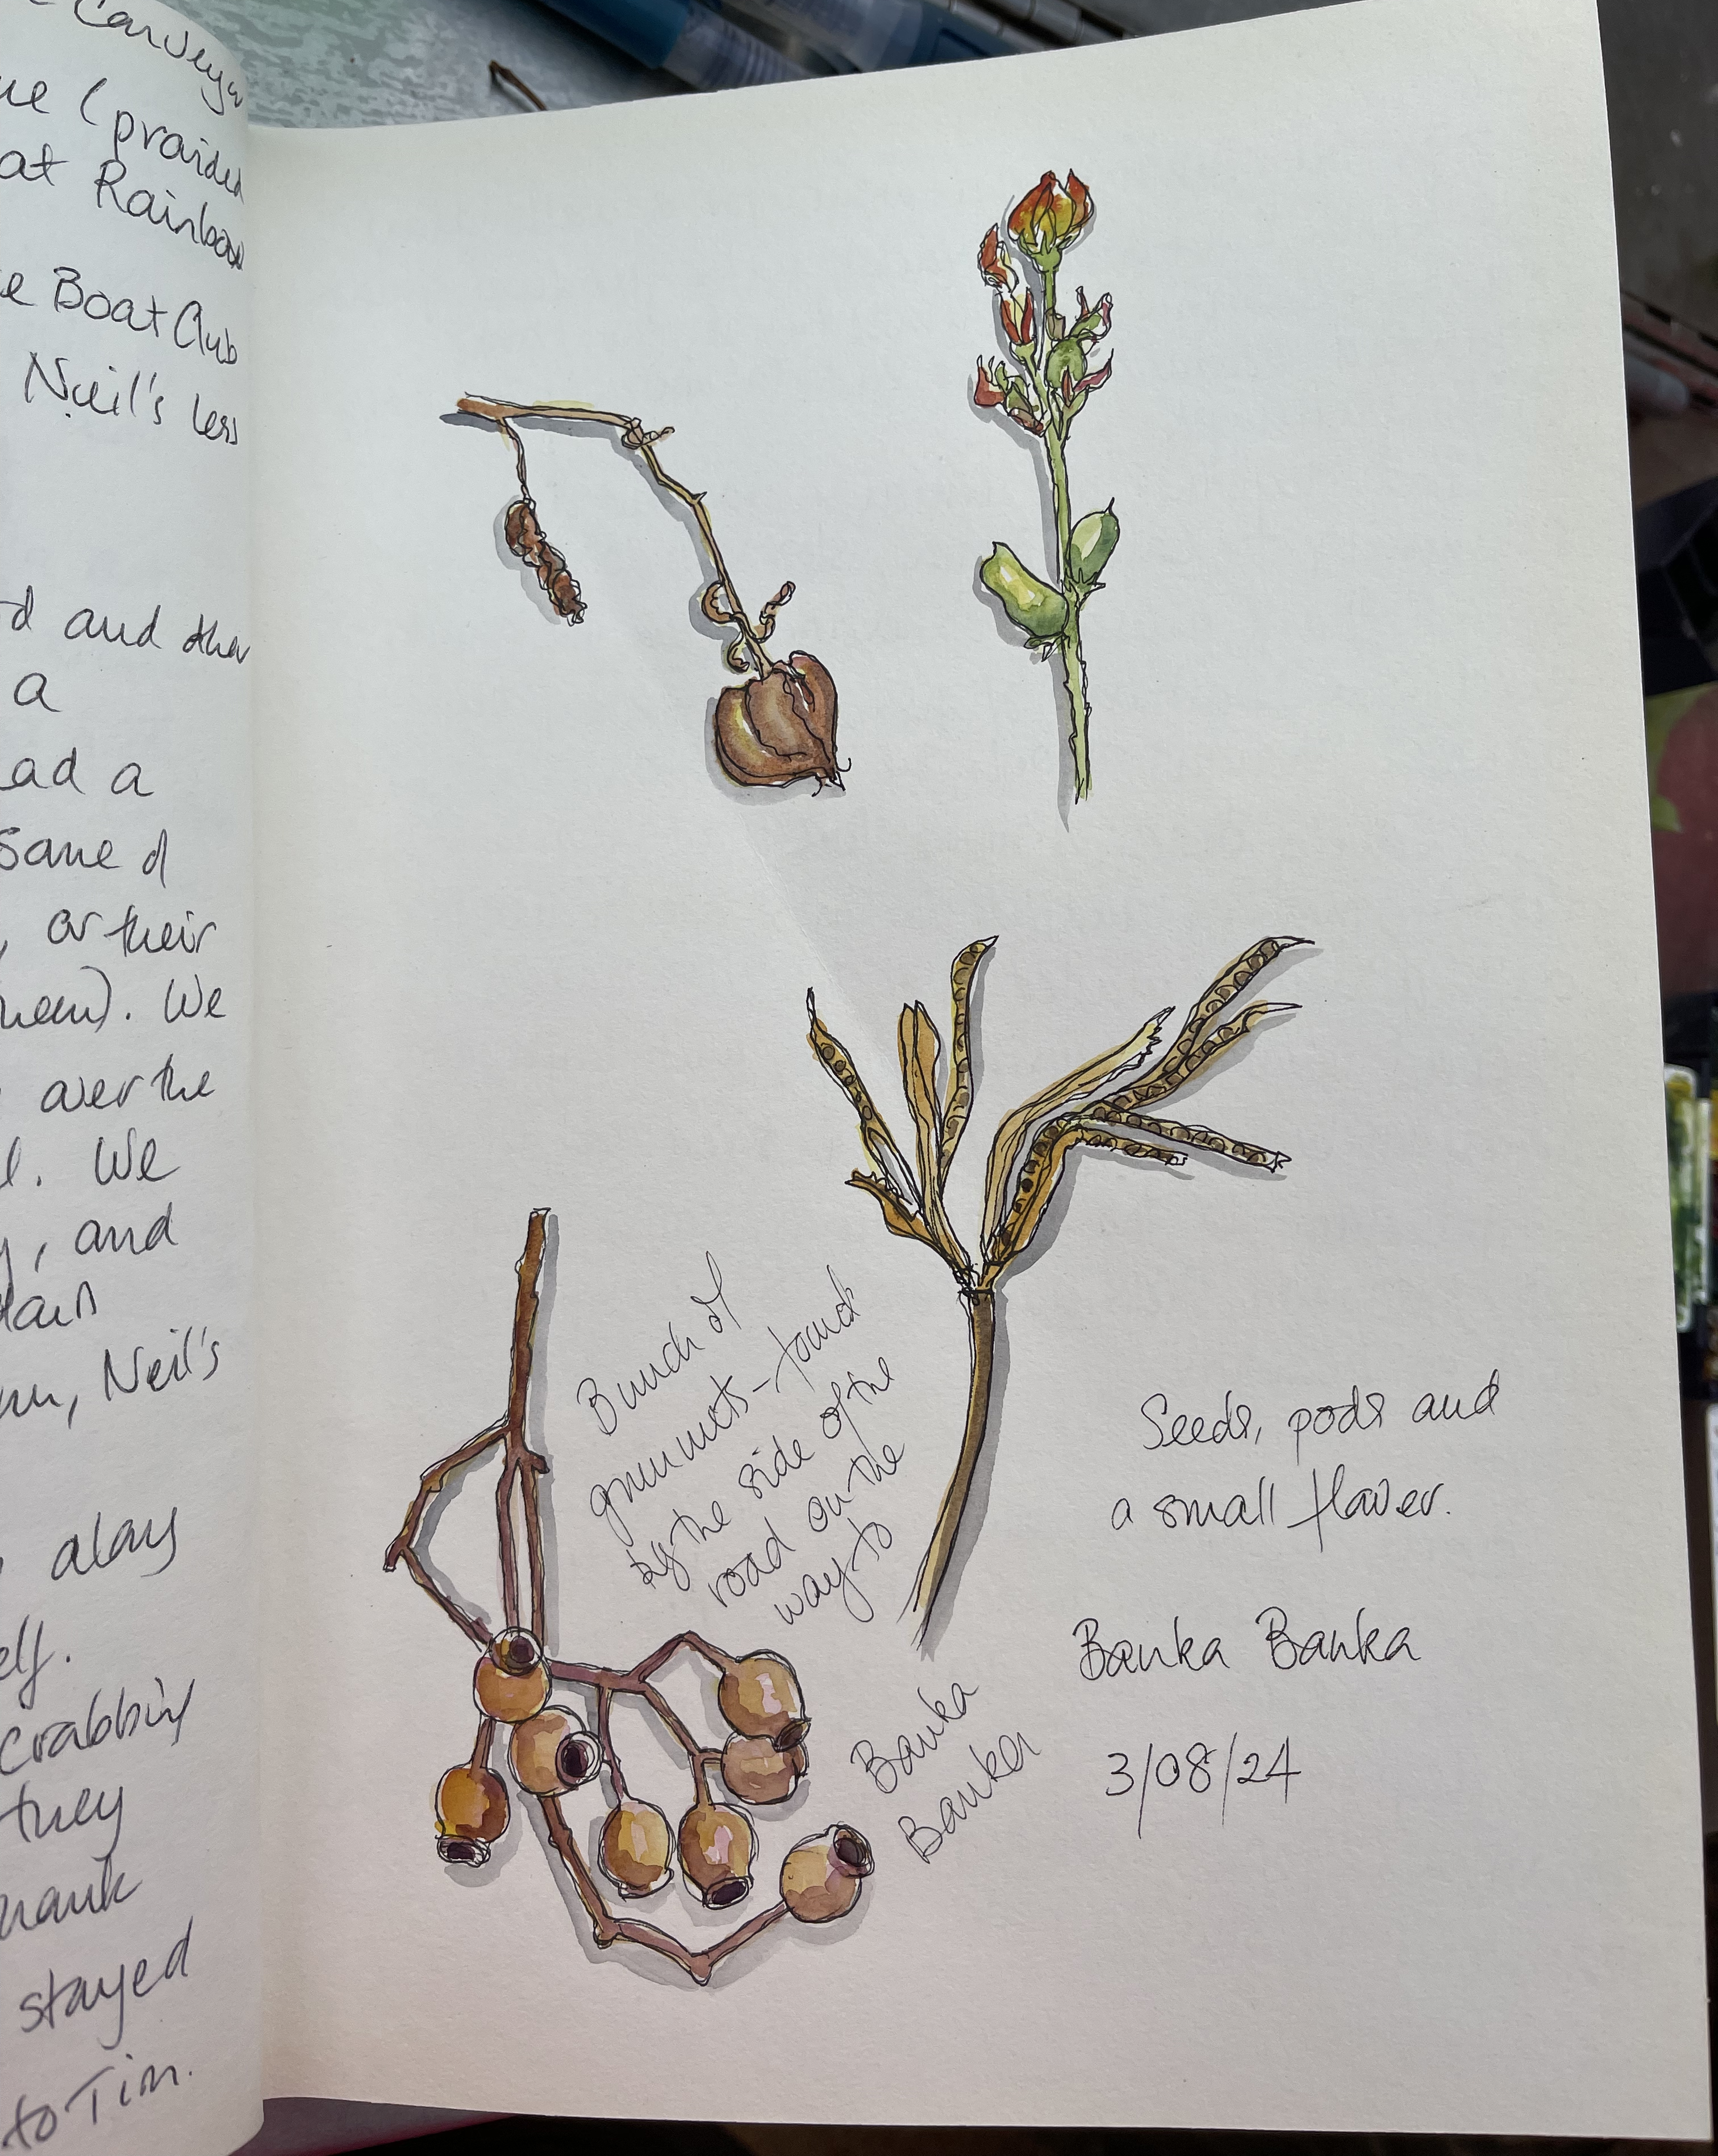 Conveya
ue (provided
at Rainbow
e Boat Club
Neil's less
d and then
a
ad a
Same of
, or their
them). We
over the
l. We
y, and
, Neil's
along
elf.
crabbing
they
thank
stayed
to Tim.
Bunch of
gumnuts - found
by the side of the
road on the
way to
Banka
Banka
Seeds, pods and
a small flower.
Banka Banka
3/08/24